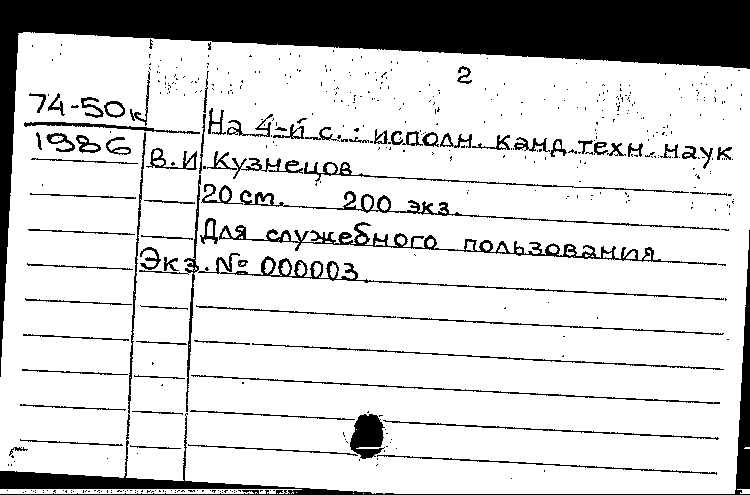 2
74-50к
1986
На 4-й с.: исполн. канд. техн. наук
В.И. Кузнецов.
20 см. 200 экз.
Для служебного пользования
Экз. № 000003.